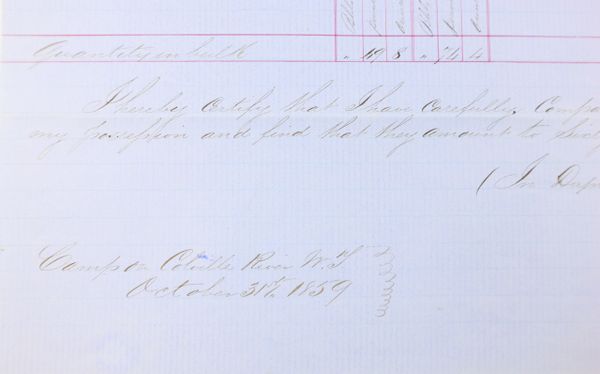 Quantity in bulk " 69 8 " 74 4
I hereby certify that I have carefully
my possession and find that they amount to
( In
Camp on Colville River W. T.
October 31st 1859